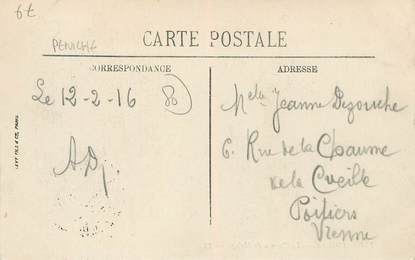 6€
PENICHE
CARTE POSTALE
CORRESPONDANCE
ADRESSE
Le 12-2-16
80
Melle Jeanne
6. Rue de la Chaume
de la Cueille
Poitiers
Vienne
AD
LEVY FILS & CIE, PARIS